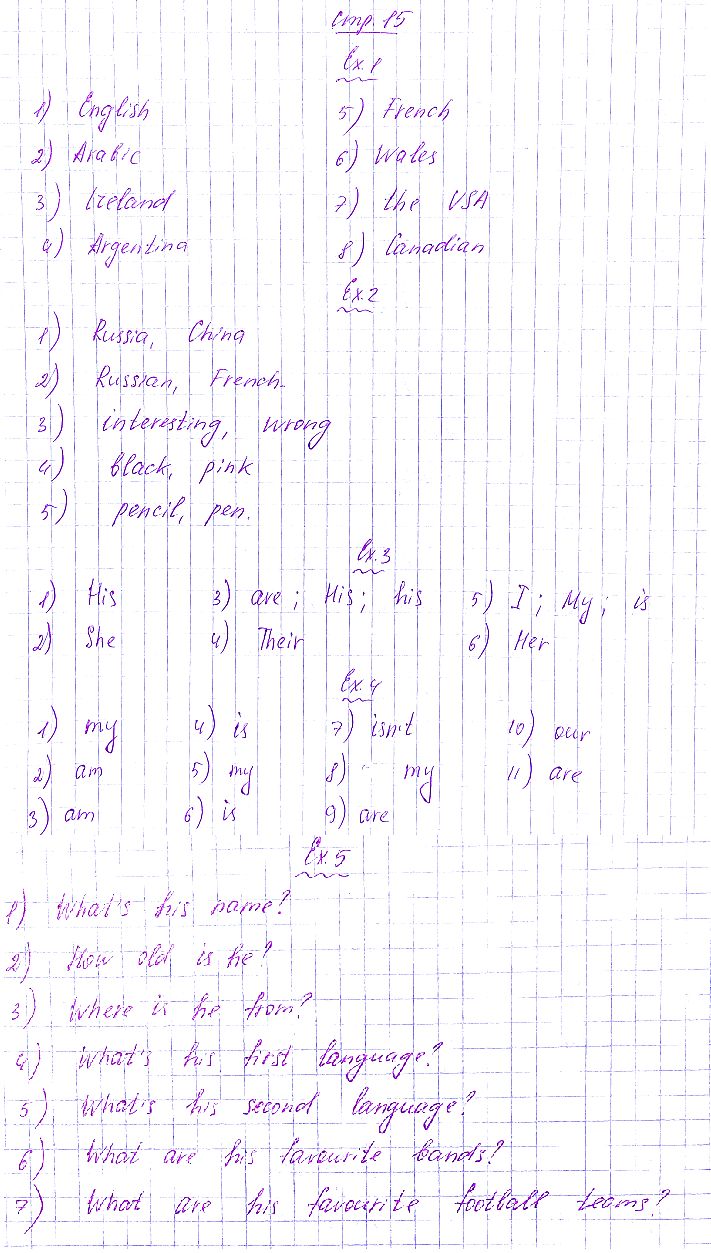 стр. 15
Ex. 1
1) English 5) French
2) Arabic 6) Wales
3) Ireland 7) the USA
4) Argentina 8) Canadian
Ex. 2
1) Russia, China
2) Russian, French.
3) interesting, wrong
4) black, pink
5) pencil, pen.
Ex. 3
1) His 3) are; His; his 5) I; My; is
2) She 4) Their 6) Her
Ex. 4
1) my 4) is 7) isn't 10) our
2) am 5) my 8) my 11) are
3) am 6) is 9) are
Ex. 5
1) What's his name?
2) How old is he?
3) Where is he from?
4) What's his first language?
5) What's his second language?
6) What are his favourite bands?
7) What are his favourite football teams?